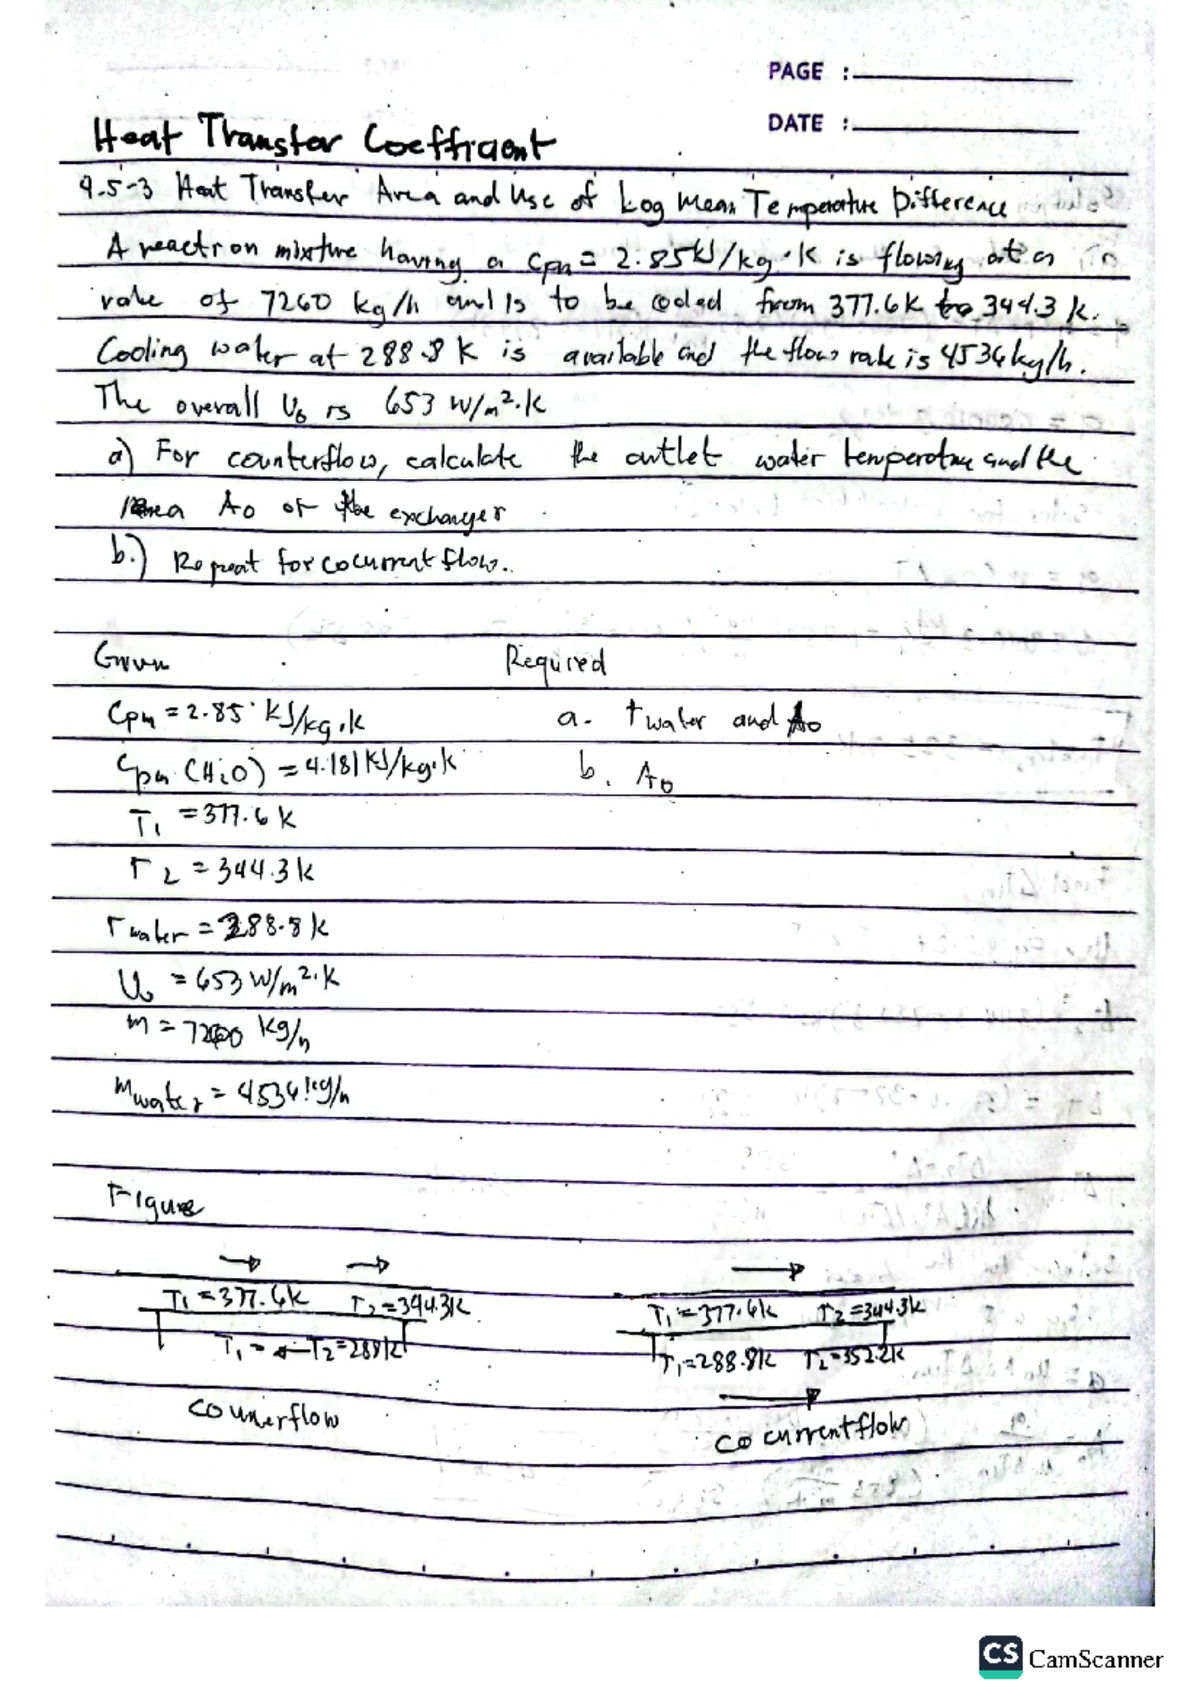 PAGE :
DATE :
Heat Transfer Coefficient
4.5-3 Heat Transfer Area and Use of Log Mean Temperature Difference
A reaction mixture having a Cpm = 2.85 kJ/kg·K is flowing at a
rate of 7260 kg/h and is to be cooled from 377.6K to 344.3 K.
Cooling water at 288.8 K is available and the flow rate is 4536 kg/h.
The overall Uo is 653 W/m².K
a) For counterflow, calculate the outlet water temperature and the
Area Ao of the exchanger
b.) Repeat for cocurrent flow.
Given Required
Cpm = 2.85 KJ/kg.K a. Twater and Ao
Cpm (H2O) = 4.181 KJ/kg.K b. Ao
T1 = 377.6 K
T2 = 344.3 K
Twater = 288.8 K
Uo = 653 W/m².K
m = 7260 kg/h
mwater = 4536 kg/h
Figure
T1 = 377.6K T2 = 344.3K T1 = 377.6K T2 = 344.3K
T1 = ← T2 = 288K T1 = 288.8K T2 = 352.2K
Counerflow
Co currentflow
CS CamScanner